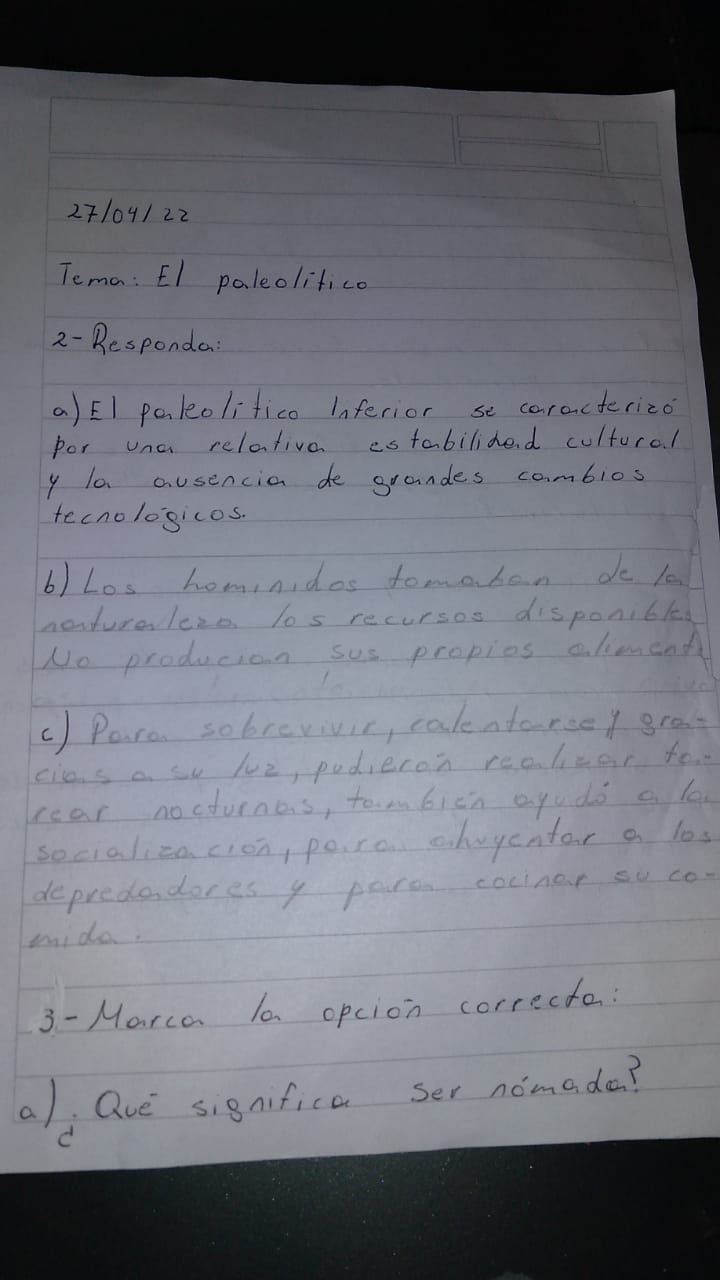 27/04/22
Tema: El paleolítico
2-Responda:
a) El paleolítico Inferior se caracterizó
por una relativa estabilidad cultural
y la ausencia de grandes cambios
tecnológicos.
b) Los hominidos tomaban de la
naturaleza los recursos disponibles
No producian sus propios aliment
c) Para sobrevivir, calentarse y gra-
cias a su luz, pudierón realizar ta-
rear nocturnas, también ayudó a la
socialización, para ahuyentar a los
depredadores y para cocinar su co-
mida.
3-Marca la opción correcta:
a) ¿Qué significa ser nómada?